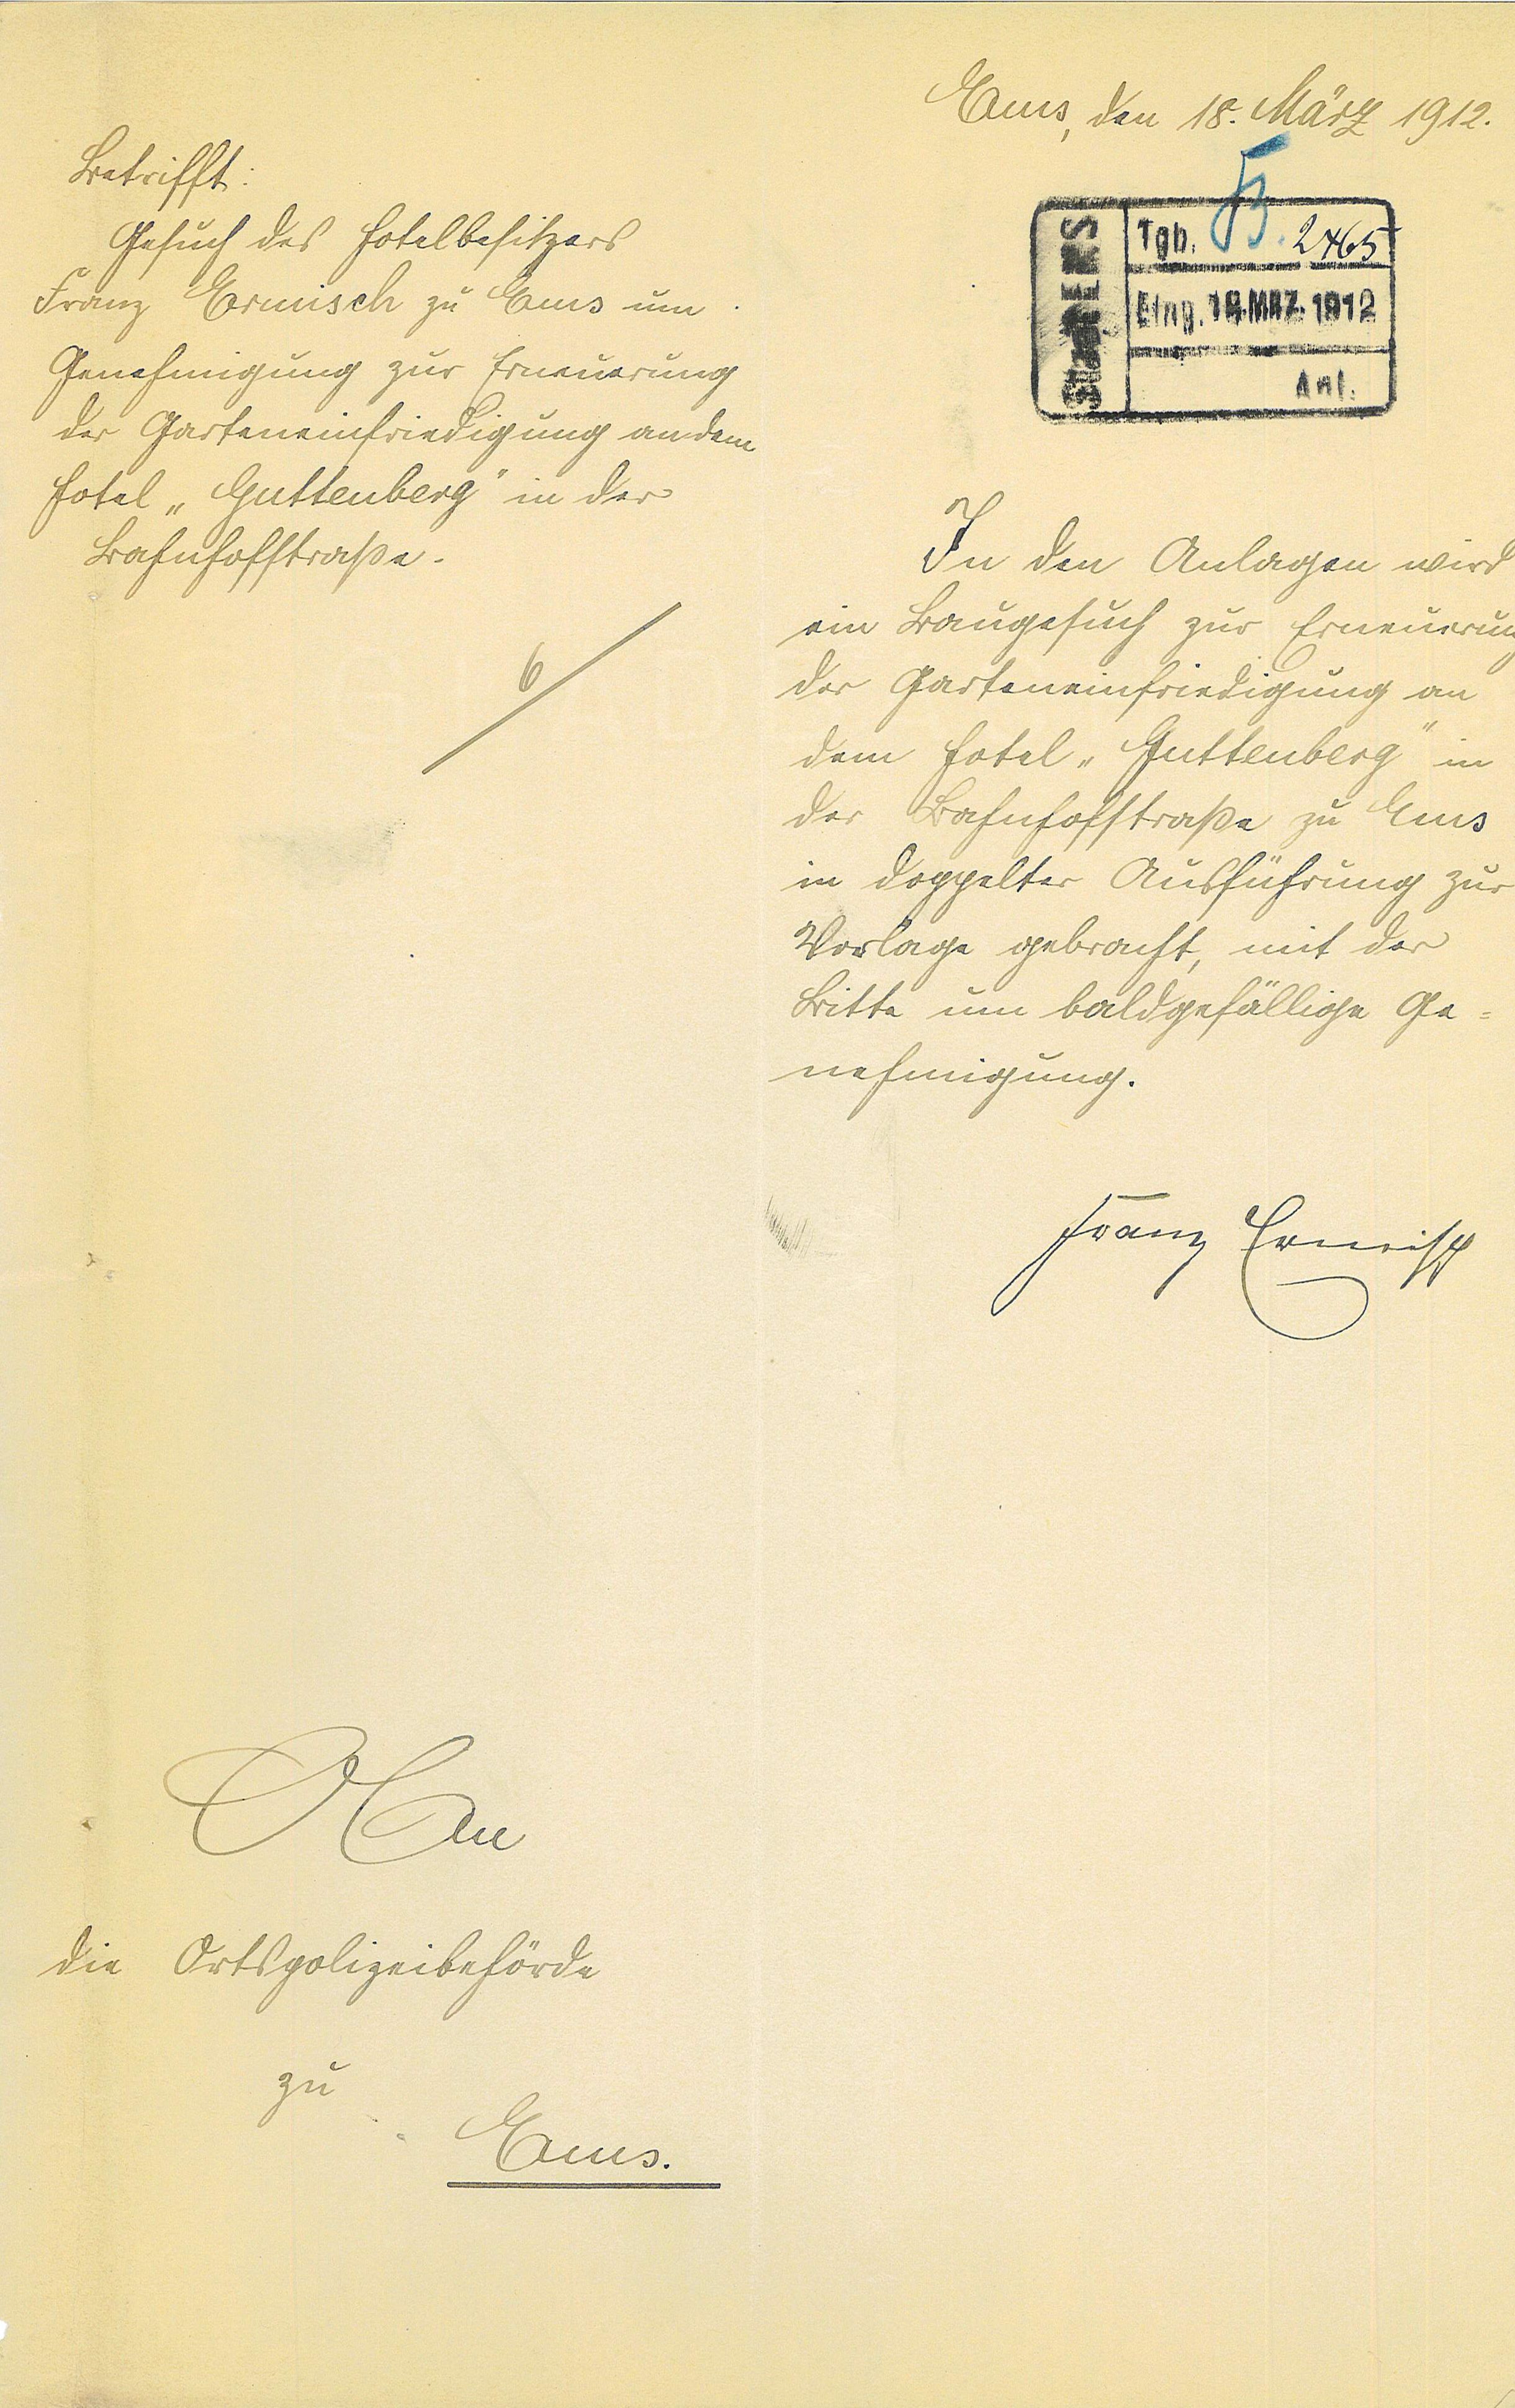 Ems, den 18. März 1912.
Betrifft:
Gesuch des Hotelbesitzers
Franz Ermisch zu Ems um
Genehmigung zur Erneuerung
der Garteneinfriedigung an dem
Hotel „Guttenberg" in der
Bahnhofstraße.
6
Stadt EMS
Tgb. B. 2465
Eing. 18. MRZ. 1912
Anl.
In den Anlagen wird
ein Baugesuch zur Erneuerung
der Garteneinfriedigung an
dem Hotel „Guttenberg" in
der Bahnhofstraße zu Ems
in doppelter Ausführung zur
Vorlage gebracht, mit der
Bitte um baldgefällige Ge=
nehmigung.
Franz Ermisch
An
die Ortspolizeibehörde
zu
Ems.